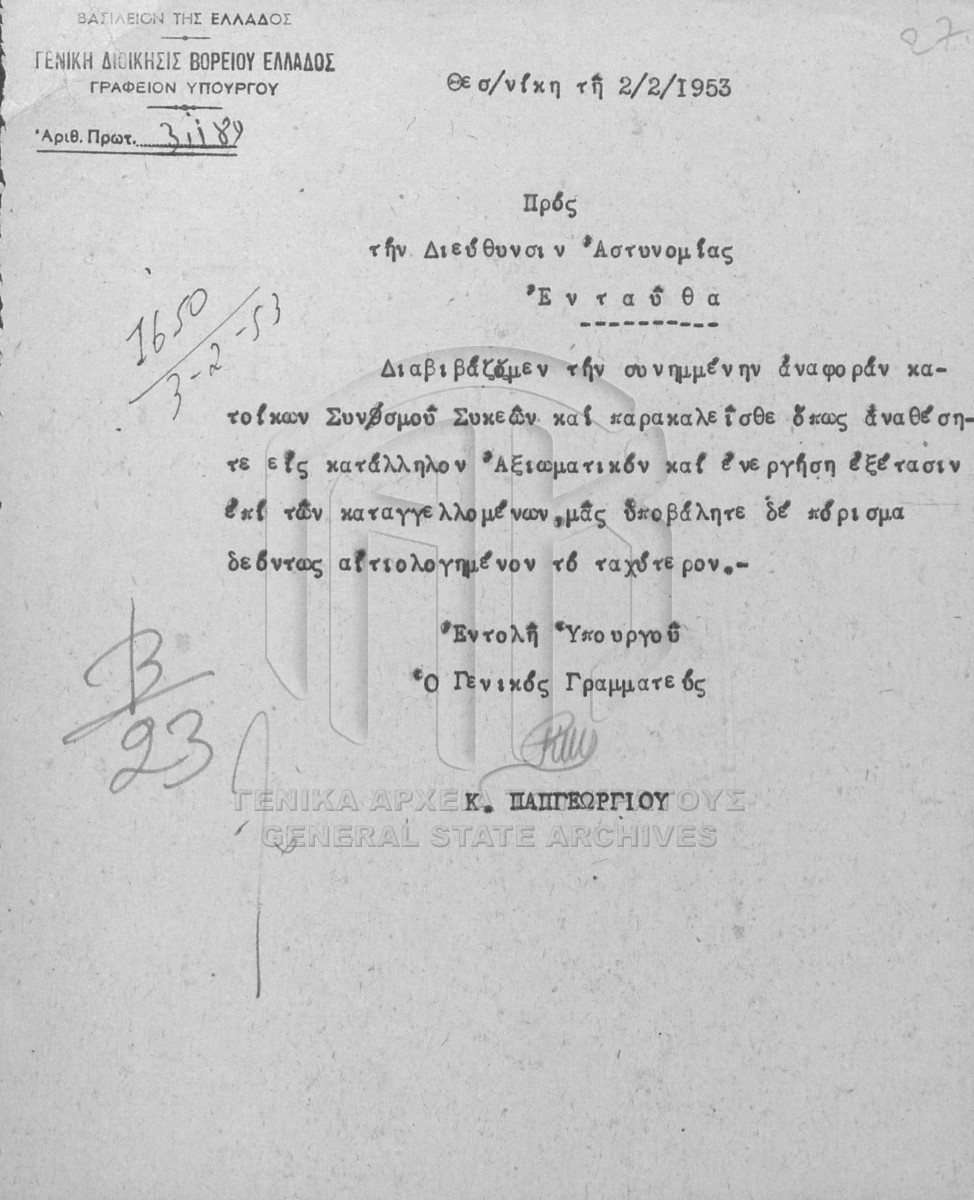 ΒΑΣΙΛΕΙΟΝ ΤΗΣ ΕΛΛΑΔΟΣ
ΓΕΝΙΚΗ ΔΙΟΙΚΗΣΙΣ ΒΟΡΕΙΟΥ ΕΛΛΑΔΟΣ
ΓΡΑΦΕΙΟΝ ΥΠΟΥΡΓΟΥ
Ἀριθ. Πρωτ.
27.
Θεσ/νίκη τῇ 2/2/1953
Πρός
τήν Διεύθυνσιν Ἀστυνομίας
Ἐνταῦθα
1650
3-2-53
Διαβιβάζομεν τήν συνημμένην ἀναφοράν κα-
τοίκων Συνοσμοῦ Συκεῶν καί παρακαλεῖσθε ὅπως ἀναθέση-
τε εἰς κατάλληλον Ἀξιωματικόν καί ἐνεργήση ἐξέτασιν
ἐπί τῶν καταγγελλομένων, μᾶς ὑποβάλητε δέ πόρισμα
δεόντως αἰτιολογημένον τό ταχύτερον.-
Ἐντολῇ Ὑπουργοῦ
Ὁ Γενικός Γραμματεύς
Β
23
Κ. ΠΑΠΓΕΩΡΓΙΟΥ
ΓΕΝΙΚΑ ΑΡΧΕΙΑ ΤΟΥ ΚΡΑΤΟΥΣ
GENERAL STATE ARCHIVES